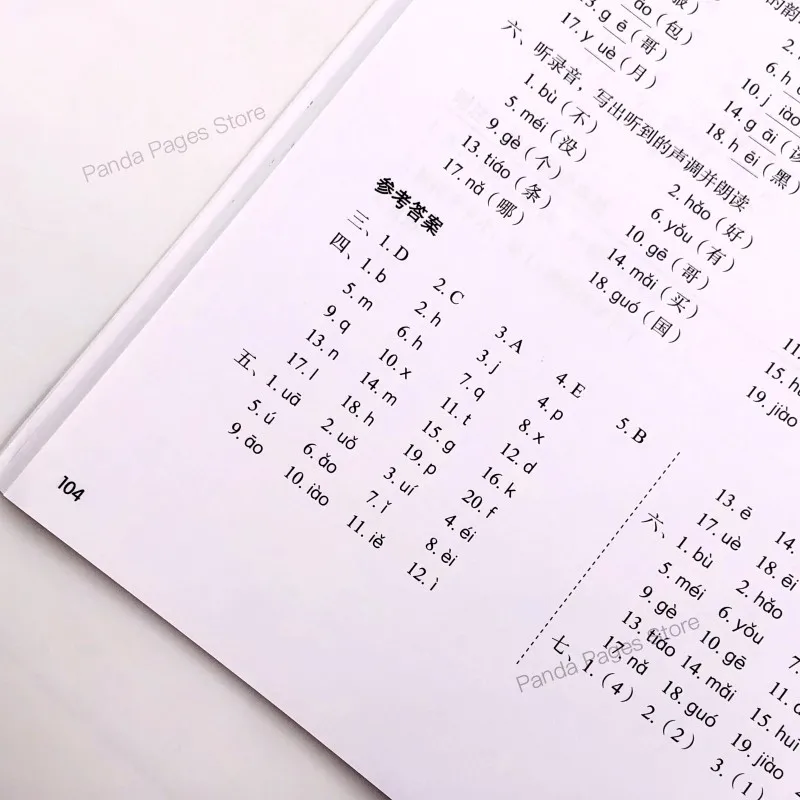 ɑo（包）
13.g ē（哥） 14.g āi
17.y uè（月） 18.h ēi（黑）
六、听录音，写出听到的声调并朗读
1.bù（不） 2.hǎo（好）
5.méi（没） 6.yǒu（有）
9.gè（个） 10.gē（哥） 11.
13.tiáo（条） 14.mǎi（买） 15.hu
17.nǎ（哪） 18.guó（国） 19.jiào
参考答案
三、1.D 2.C 3.A 4.E 5.B
四、1.b 2.h 3.j 4.p
5.m 6.h 7.q 8.x
9.q 10.x 11.t 12.d
13.n 14.m 15.g 16.k
17.l 18.h 19.p 20.f
五、1.uā 2.uǒ 3.uí 4.éi
5.ú 6.ǎo 7.ǐ 8.èi
9.āo 10.iào 11.iě 12.ì
13.ē 14.
17.uè 18.ēi
六、1.bù 2.hǎo
5.méi 6.yǒu 7.
9.gè 10.gē 11.
13.tiáo 14.mǎi 15.hui
17.nǎ 18.guó 19.jiào
七、1.（4） 2.（2） 3.（1）
104
Panda Pages Store
Panda Pages Store